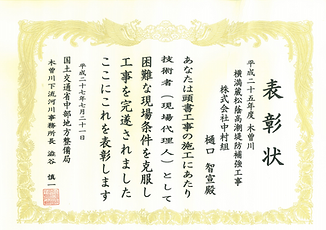 表彰状
平成二十五年度 木曽川
横満蔵松蔭高潮堤防補強工事
株式会社中村組
樋口 智宣殿
あなたは頭書工事の施工にあたり
技術者（現場代理人）として
困難な現場条件を克服し
工事を完遂されました
ここにこれを表彰します
平成二十七年七月二十一日
国土交通省中部地方整備局
木曽川下流河川事務所長 澁谷 慎一